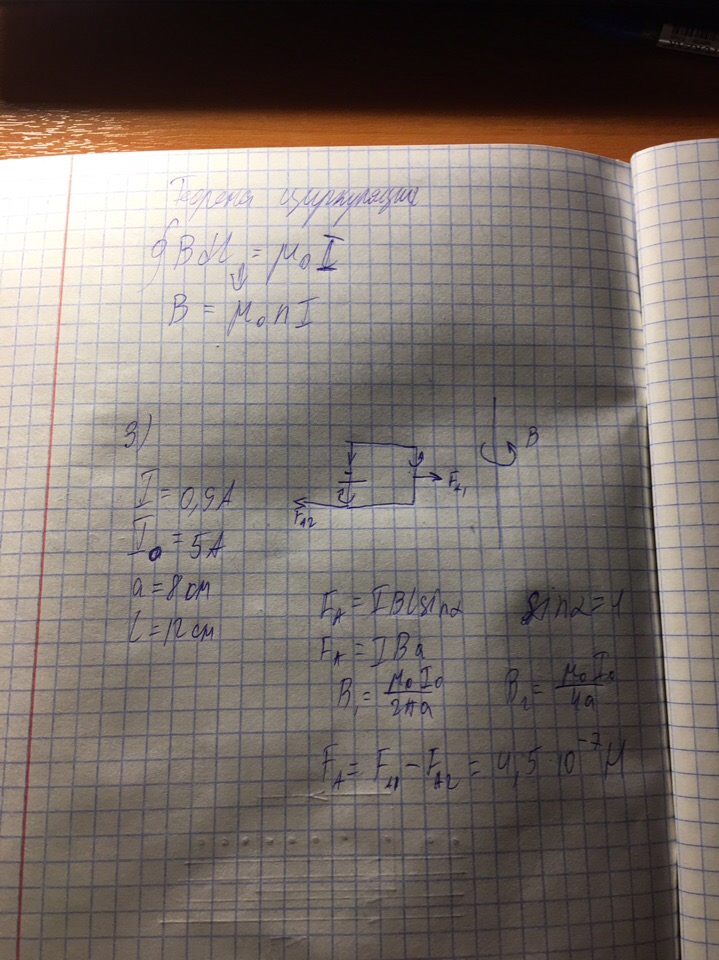 Теорема циркуляции
∮Bdl = μ₀I
B = μ₀nI
3)
B
I = 0,9A
F_A1
F_A2
I₀ = 5A
a = 8 см
l = 12 см
F_A = IBlsinα sinα = 1
F_A = IBa
B₁ = μ₀I₀/2πa B₂ = μ₀I₀/4a
F_A = F_A1 - F_A2 = 4,5·10⁻⁷ Н